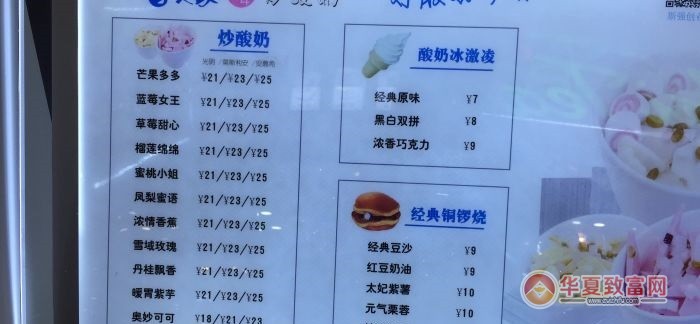 炒酸奶
光明/莫斯利安/安慕希
芒果多多 ¥21/¥23/¥25
蓝莓女王 ¥21/¥23/¥25
草莓甜心 ¥21/¥23/¥25
榴莲绵绵 ¥21/¥23/¥25
蜜桃小姐 ¥21/¥23/¥25
凤梨蜜语 ¥21/¥23/¥25
浓情香蕉 ¥21/¥23/¥25
雪域玫瑰 ¥21/¥23/¥25
丹桂飘香 ¥21/¥23/¥25
暖胃紫芋 ¥21/¥23/¥25
奥妙可可 ¥18/¥21/¥23
酸奶冰激凌
经典原味 ¥7
黑白双拼 ¥8
浓香巧克力 ¥9
经典铜锣烧
经典豆沙 ¥9
红豆奶油 ¥9
太妃紫薯 ¥10
元气栗蓉 ¥10
华夏致富网